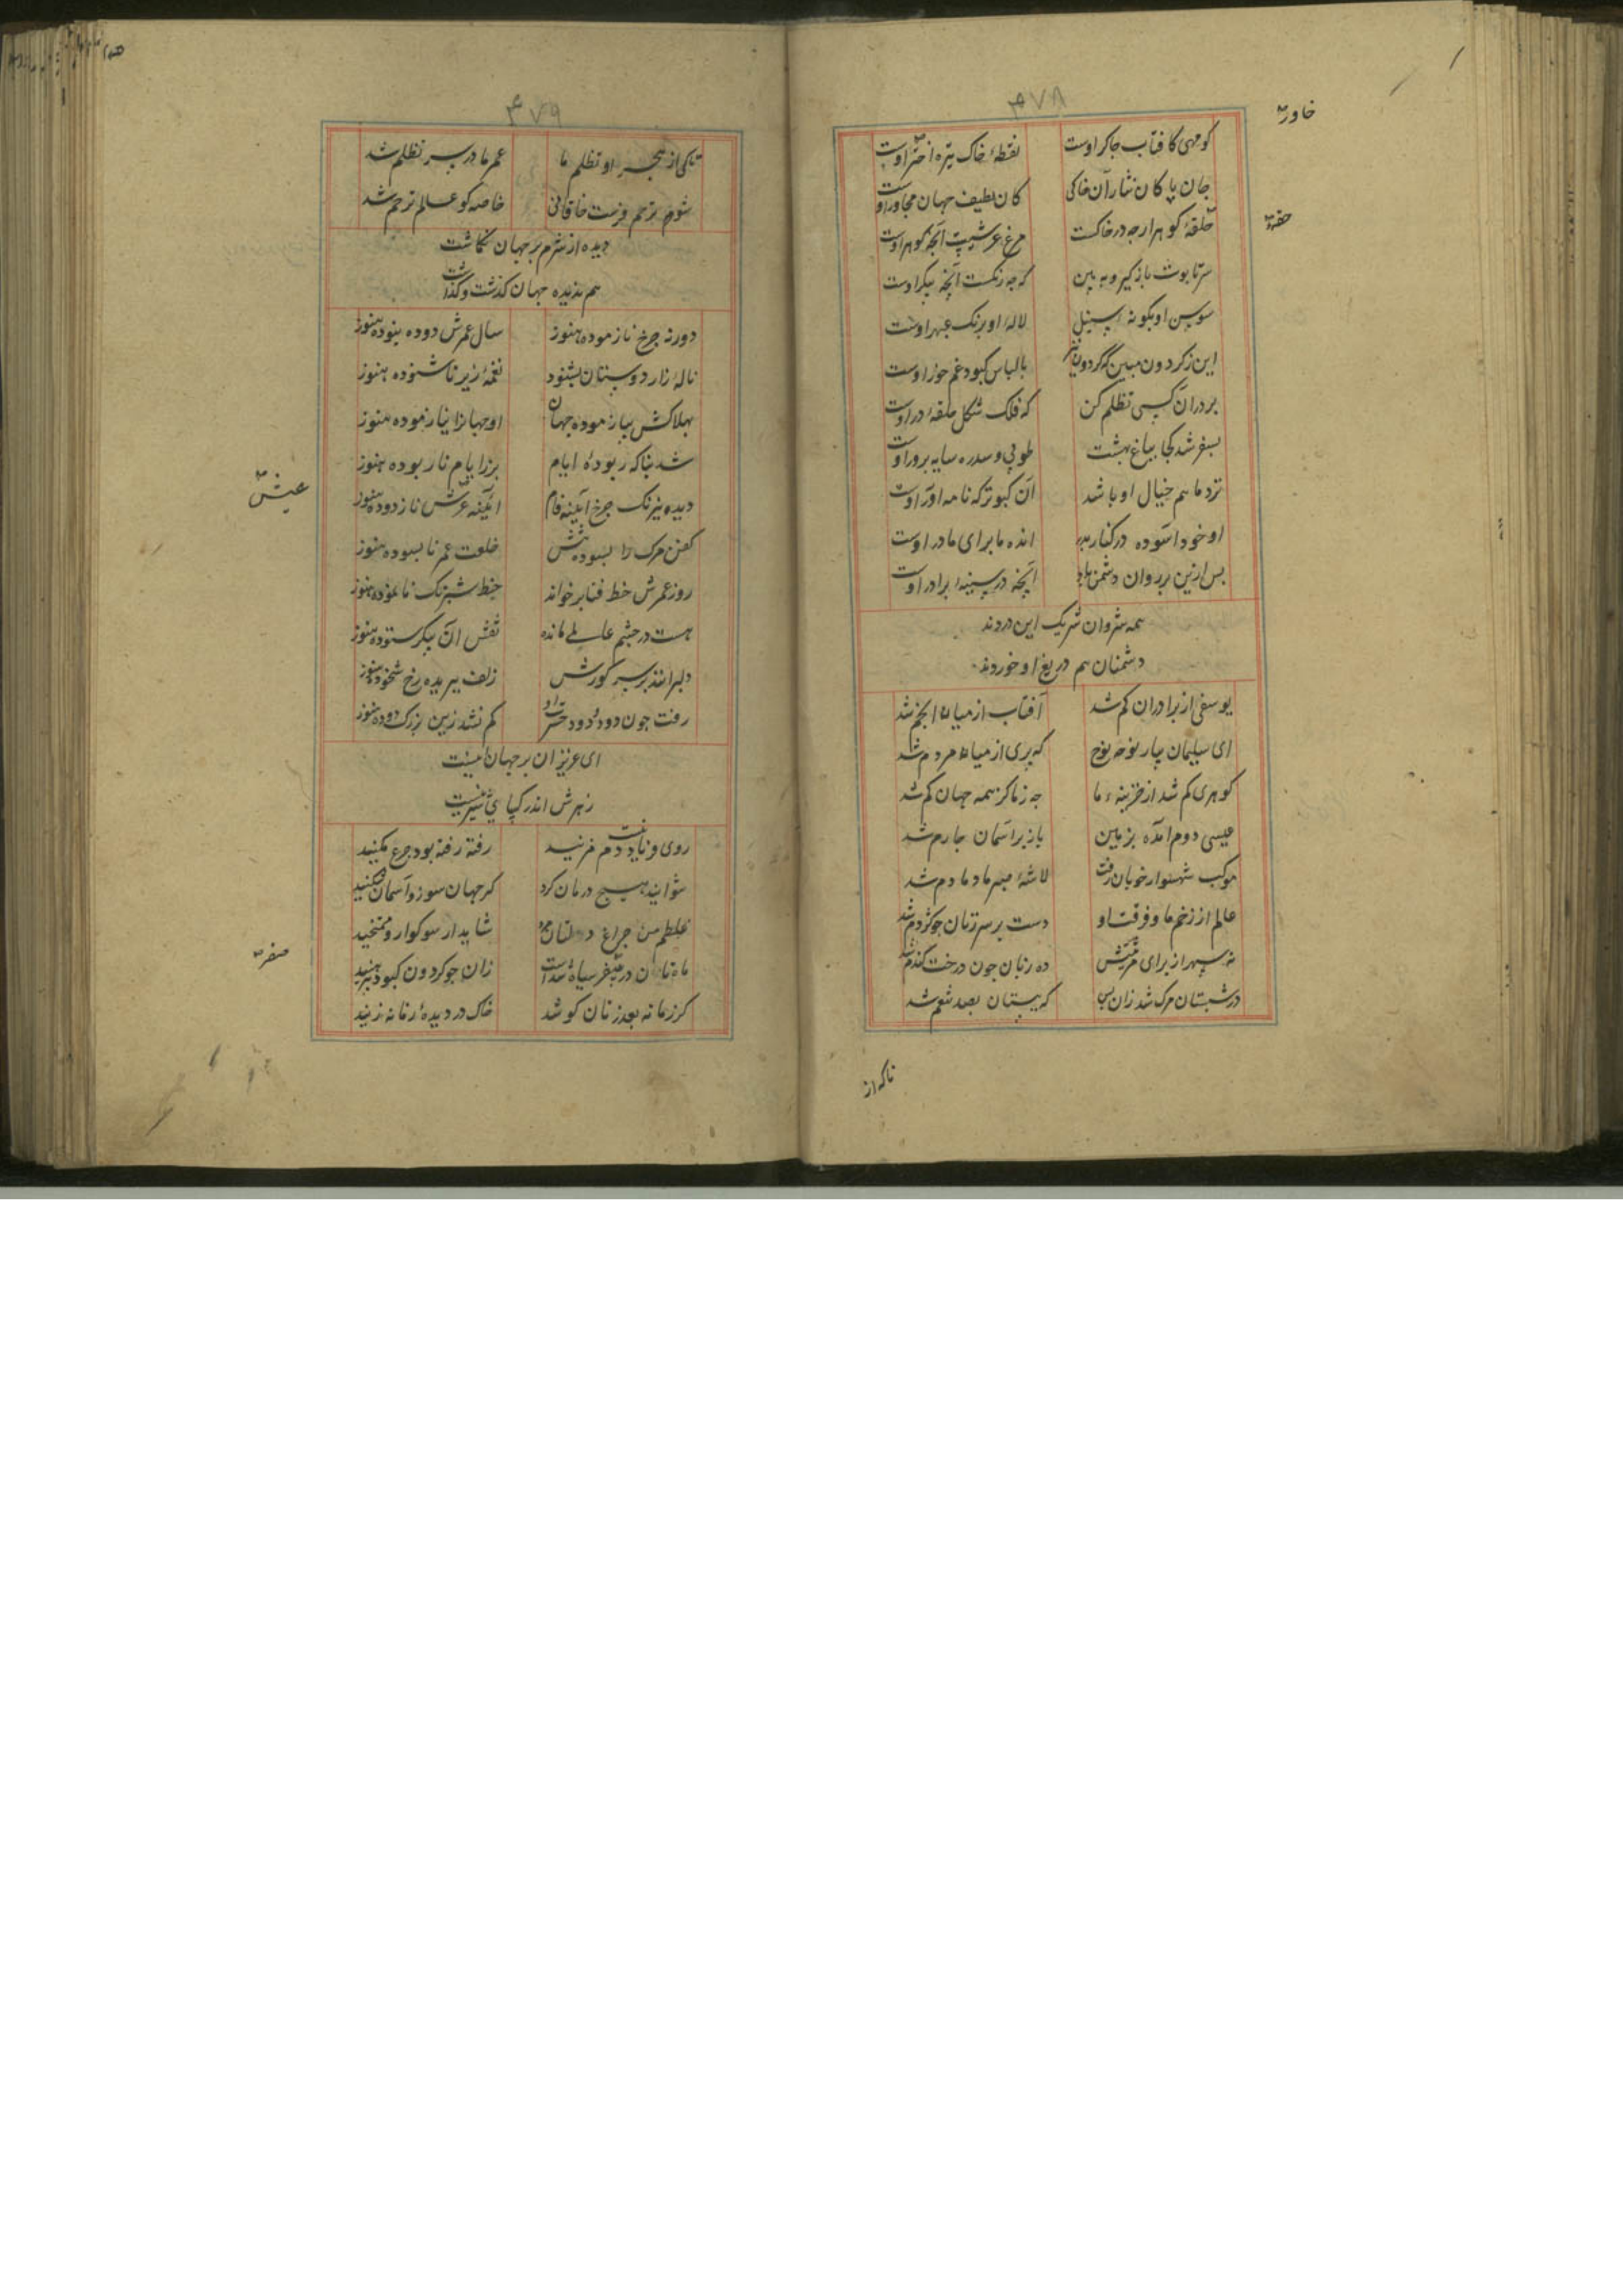 ۳۷۸
خاور
کو مهی کافتاب چاکر اوست نقطهٔ خاک تیره اختر اوست
جان پاکان نثار آن خاکی کان لطیف جهان مجاور اوست
حلقهٔ کوهر ارچه در خاکست مرغ عرشیست آنچه کوهر اوست
سر تابوت باز کیر و ببین که چه رنکست آنچه پیکر اوست
سوسن او بکونهٔ سنبل لالهٔ او برنک عبهر اوست
این زکردون مبین که کردون نیز با لباس کبود غمخور اوست
بر در آن کسی تظلم کن که فلک شکل حلقهٔ در اوست
بسفر شد کجا بباغ بهشت طوبی و سدره سایه پرور اوست
نزد ما هم خیال او باشد آن کبوتر که نامه آور اوست
او خود آسوده در کنار پدر انده ما برای مادر اوست
پس ازین بر روان دشمن باد آنچه در سینهٔ برادر اوست
همه شروان شریک این دردند
دشمنان هم دریغ او خوردند
یوسفی از برادران کم شد آفتاب از میان انجم شد
ای سلیمان بیار نوحه نوح که پری از میان مردم شد
کوهری کم شد از خزینهٔ ما چه ز ما کز همه جهان کم شد
عیسی دوم آمده بزمین باز بر آسمان چارم شد
موکب شهسوار خوبان رفت لاشهٔ صبر ما دمادم شد
عالم از زخم ما و فرقت او دست بر سر زنان چو کژدم شد
نه سپهر از برای مرثیتش ده زبان چون درخت کندم شد
در شبستان مرک شد زان پس که ببستان بصد تنعم شد
تاکه از
۳۷۹
تاکی از هجر او تظلم ما عمر ما در سر تظلم شد
شو ترحم فرست خاقانی خاصه کو عالم ترحم شد
دیده از شرم بر جهان نکاشت
هم ندیده جهان کذشت و کذاشت
دور نه چرخ نازموده هنوز سال عمرش دو ده نبوده هنوز
نالهٔ زار دوستان بشنود نغمهٔ زیر ناشنوده هنوز
بهلاکش بیازموده جهان او جهانرا نیازموده هنوز
شد بناکه ربودهٔ ایام بر ز ایام نا ربوده هنوز
دیده نیرنک چرخ آینه فام آینه عرش نازدوده هنوز
عیش
کفن مرک را بسوده تنش خلعت عمر نابسوده هنوز
روز عمرش خط فنا برخواند خط شبرنک نانموده هنوز
هست در چشم عالمی مانده نقش آن پیکر ستوده هنوز
دلبرانند بر سر کورش زلف ببریده رخ شخوده هنوز
رفت چون دود و دود حسرت او کم نشد زین بزرک دوده هنوز
ای عزیزان بر جهان اینست
زهرش اندر کیای شیرینست
دم مزنید رفته رفته بود جزع مکنید
نتوانید هیچ درمان کرد کر جهان سوز و آسمان فکنید
غلطم من چراغ دلتان مرد شاید ار سوکوار و ممتحنید
صفر
ماه تابان در صفر سیاه شدست زان چو کردون کبود پیرهنید
کر زمانه بعد زنان کو شد خاک در دیدهٔ زمانه زنید